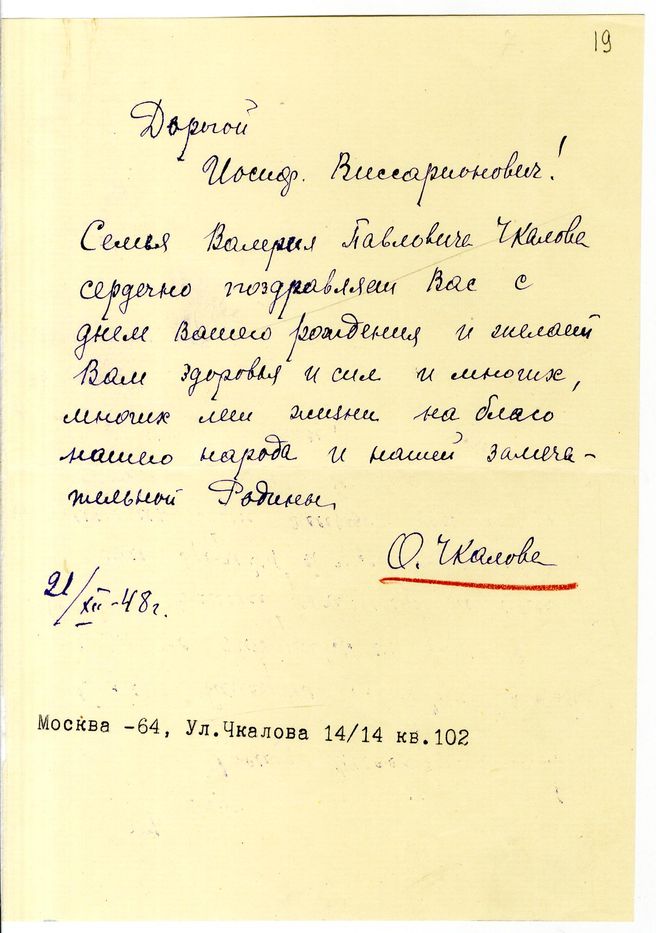 19
Дорогой
Иосиф. Виссарионович!
Семья Валерия Павловича Чкалова
сердечно поздравляет Вас с
днем Вашего рождения и желает
Вам здоровья и сил и многих,
многих лет жизни на благо
нашего народа и нашей замеча-
тельной Родины
О. Чкалова
21/XII-48г.
Москва -64, Ул.Чкалова 14/14 кв.102